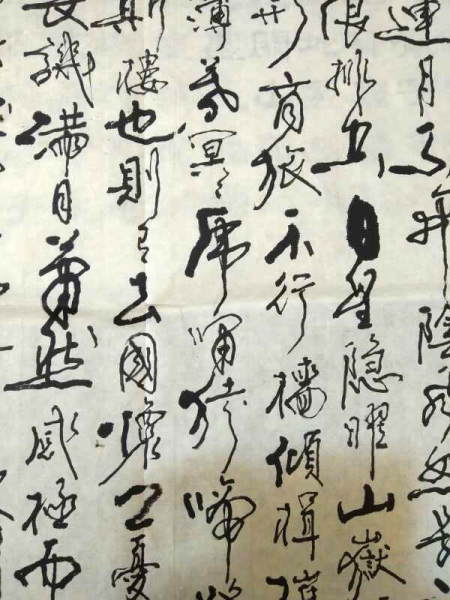 連月不开陰风怒号
浪排空日星隐曜山嶽
形商旅不行檣傾楫摧
薄暮冥々虎嘯猿啼
斯樓也則有去國懷乡憂
畏譏滿目蕭然感極而